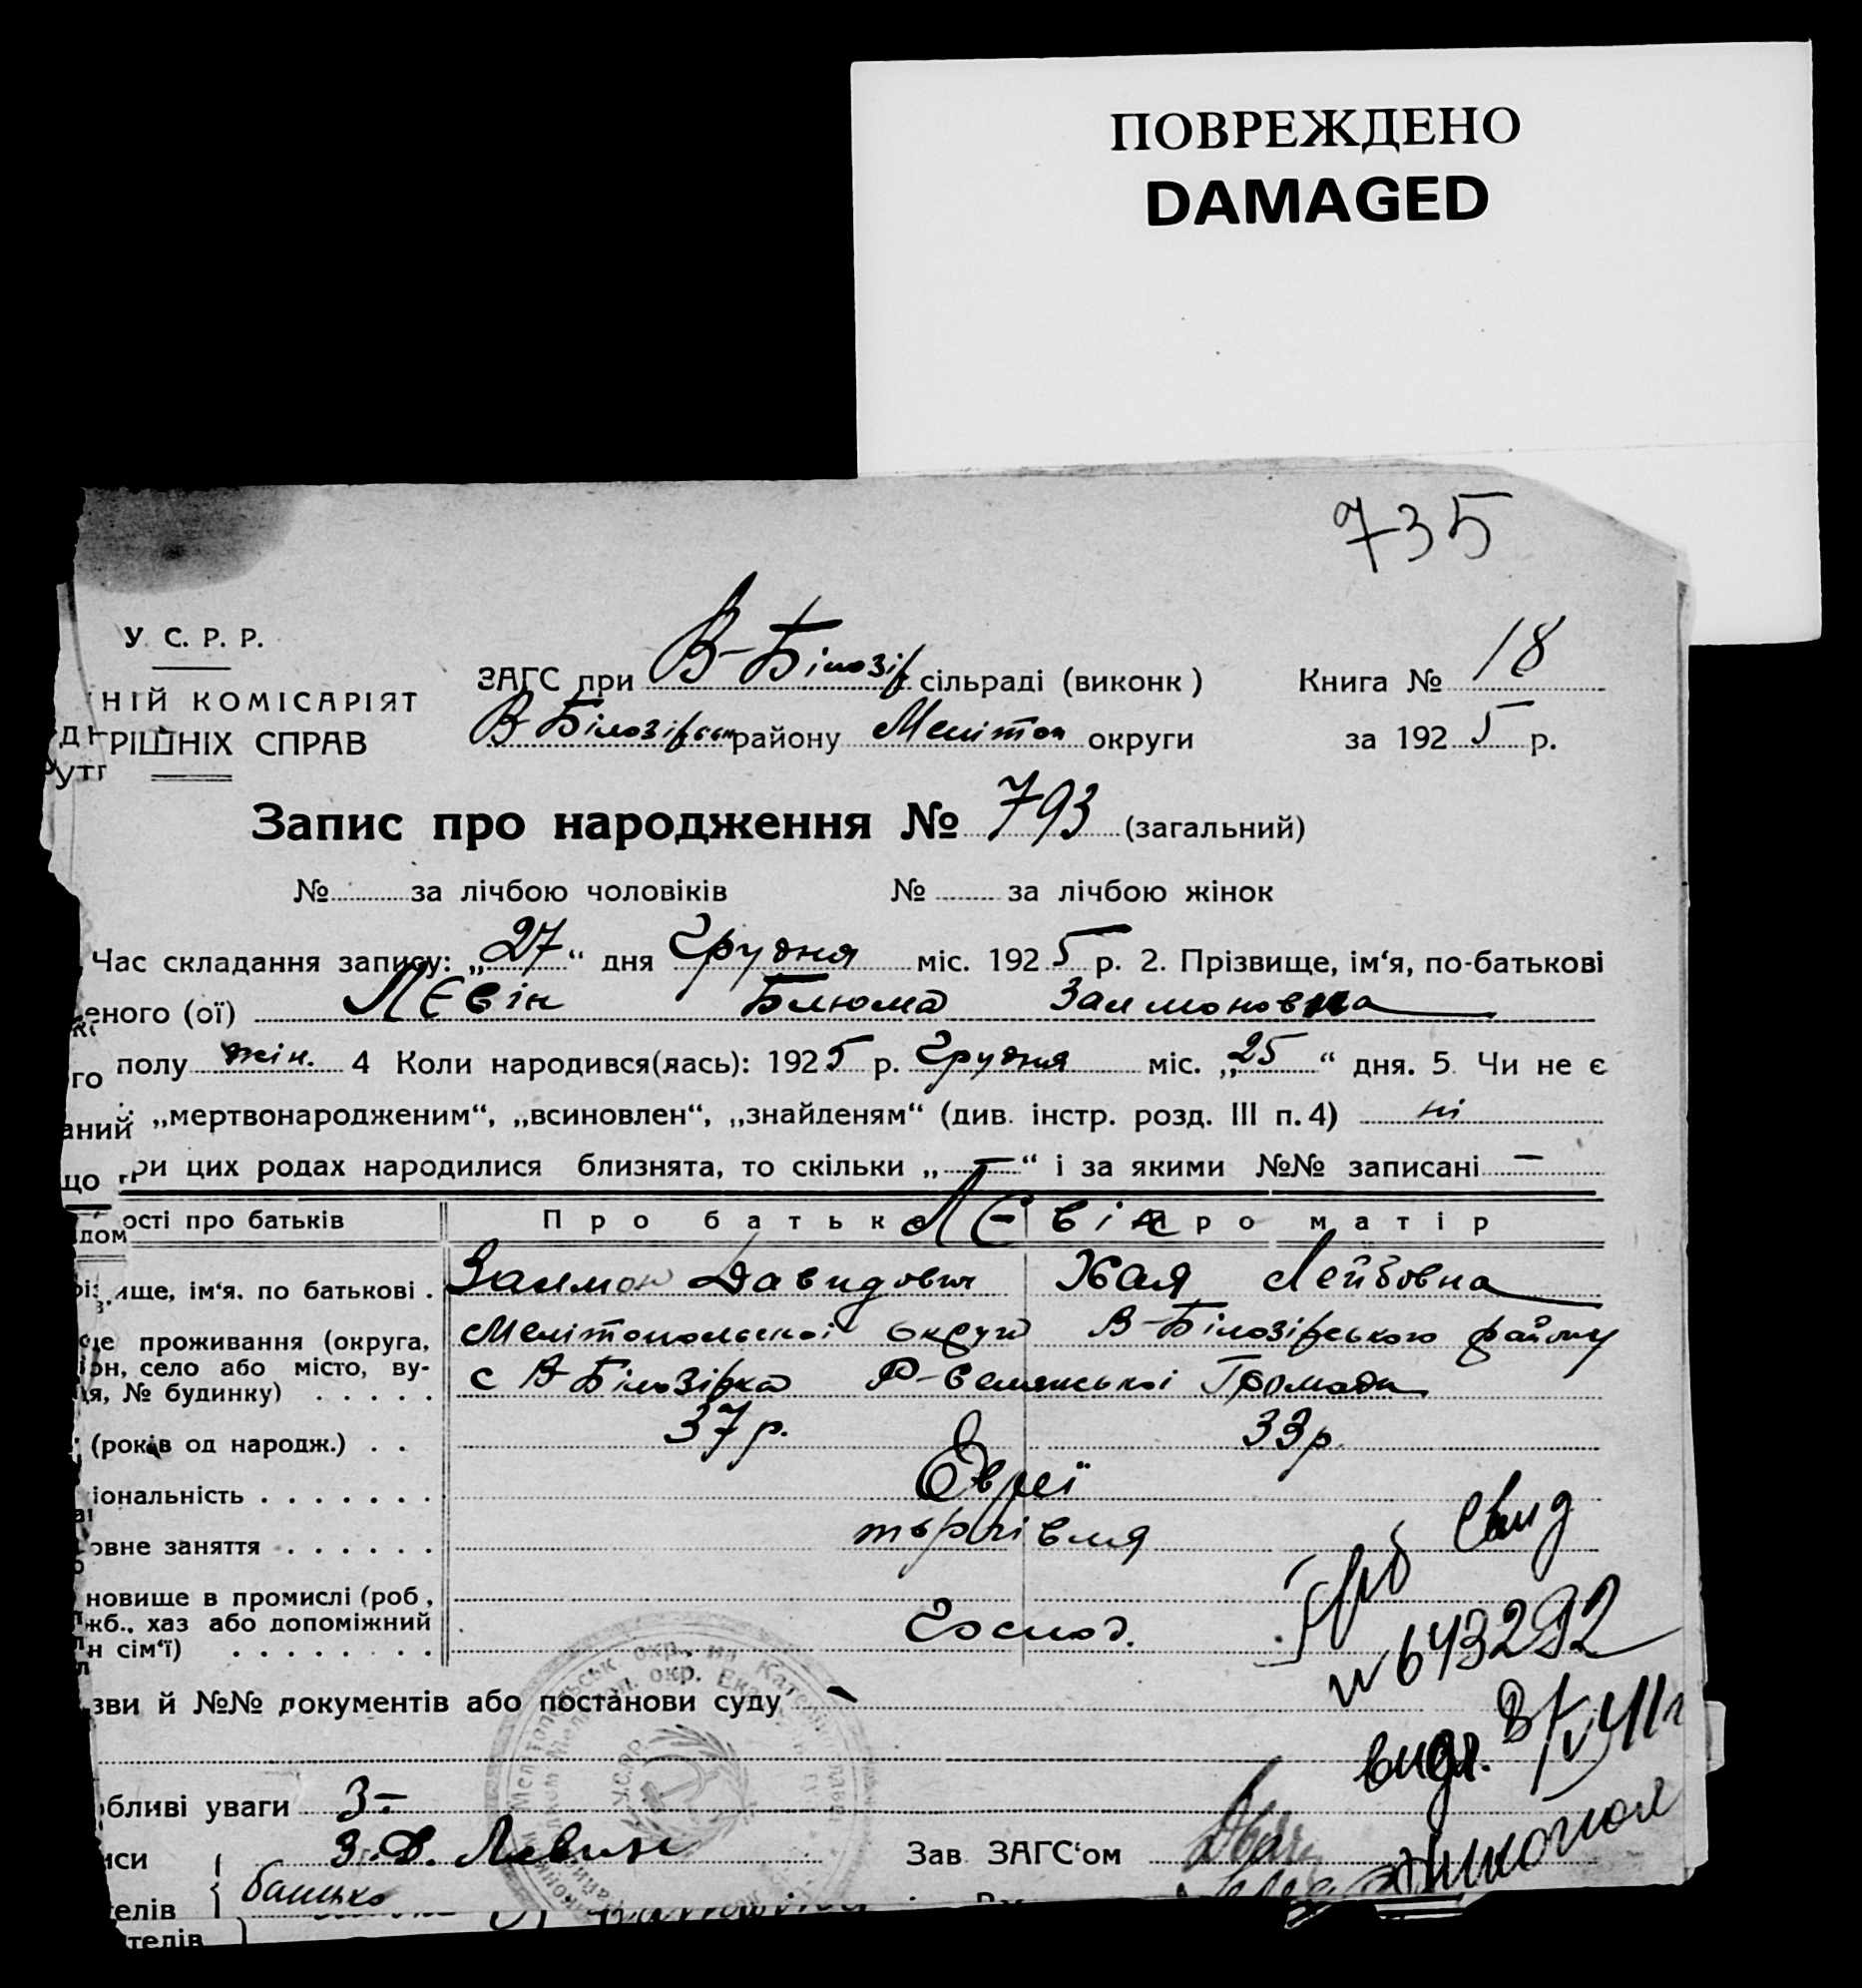 ПОВРЕЖДЕНО
DAMAGED
735
У. С. Р. Р.
НІЙ КОМІСАРІЯТ
РІШНІХ СПРАВ
ЗАГС при В-Білозір сільраді (виконк)
Книга № 18
В-Білозірськ району Мелітоп округи
за 1925 р.
Запис про народження № 793 (загальний)
№ за лічбою чоловіків № за лічбою жінок
Час складання запису: „27“ дня Грудня міс. 1925 р. 2. Прізвище, ім‘я, по-батькові
еного (ої) Лєвін Блюма Залмоновна
го полу жін. 4 Коли народився(лась): 1925 р. Грудня міс. „25“ дня. 5. Чи не є
аний „мертвонародженим“, „всиновлен“, „знайденям“ (див. інстр. розд. III п. 4) ні
що ри цих родах народилися близнята, то скільки „—“ і за якими №№ записані —
дом ості про батьків Про батька Лєвін Про матір
ище, ім‘я, по батькові . Залмон Давидович Хая Лейбовна
це проживання (округа, Мелітопольської округи В-Білозірського району
он, село або місто, ву- с В-Білозірка Р-Селянської Громади
я, № будинку) . . . . .
(років од народж.) . . 37 р. 33 р.
іональність . . . . . . . Євреї
овне заняття . . . . . . торгівля
новище в промислі (роб,
жб., хаз або допоміжний Господ.
н сім‘ї) . . . . . . . .
Свид
№ 643292
зви й №№ документів або постанови суду —
видг. 8/V 41 г
бливі уваги 3-
иси З. Д. Левин Зав ЗАГС‘ом
елів батько
Никополя
телів